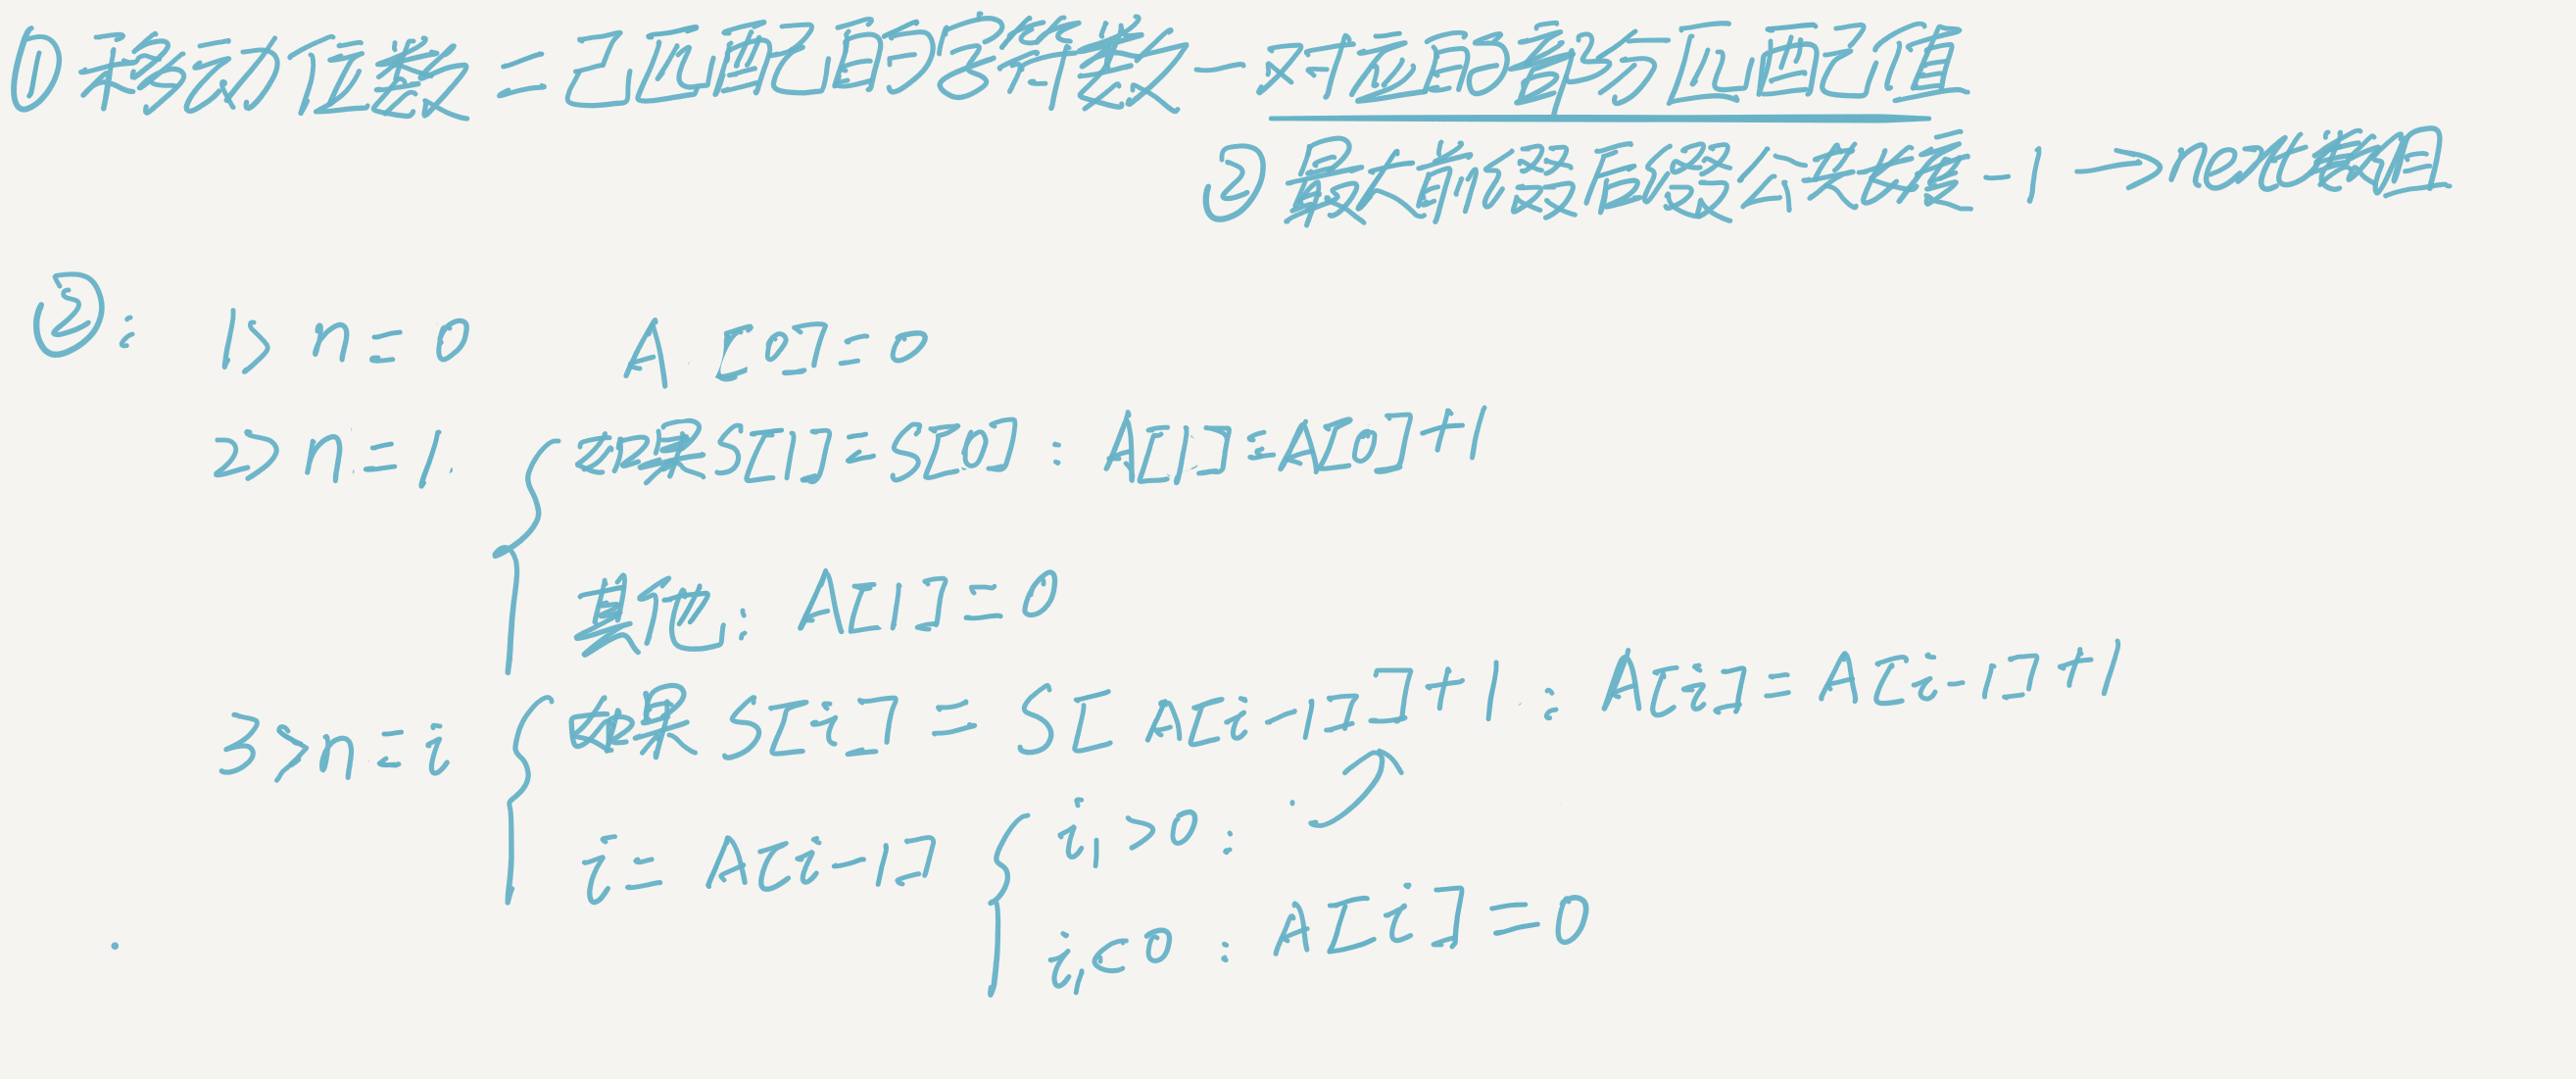 ① 移动位数 = 已匹配的字符数 - 对应的部分匹配值
② 最大前缀后缀公共长度 - 1 → next数组
②:
1> n = 0 A[0] = 0
2> n = 1. 如果S[1] = S[0] : A[1] = A[0] + 1
其他: A[1] = 0
3> n = i 如果 S[i] = S[A[i-1]] + 1 : A[i] = A[i-1] + 1
i = A[i-1] i₁ > 0 :
i₁ < 0 : A[i] = 0